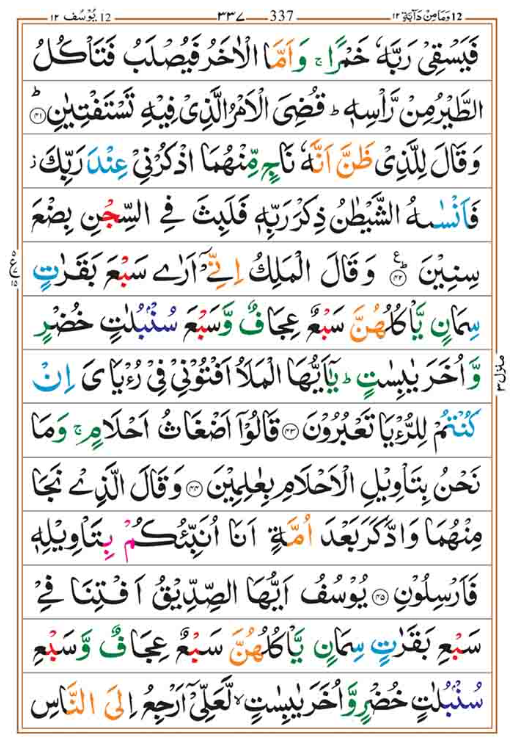 12 وَمَا مِنْ دَآبَّةٍ ١٢ 337 ٣٣٧ 12 يُوْسُف ١٢
فَيَسْقِىْ رَبَّهٗ خَمْرًا ۚ وَاَمَّا الْاٰخَرُ فَيُصْلَبُ فَتَاْكُلُ
الطَّيْرُ مِنْ رَّاْسِهٖ ؕ قُضِىَ الْاَمْرُ الَّذِىْ فِيْهِ تَسْتَفْتِيٰنِ ؕ‏ ﴿۴۱﴾
وَقَالَ لِلَّذِىْ ظَنَّ اَنَّهٗ نَاجٍ مِّنْهُمَا اذْكُرْنِىْ عِنْدَ رَبِّكَ ز
فَاَنْسٰٮهُ الشَّيْطٰنُ ذِكْرَ رَبِّهٖ فَلَبِثَ فِى السِّجْنِ بِضْعَ
سِنِيْنَ ؕ ﴿۴۲﴾ ع وَقَالَ الْمَلِكُ اِنِّىْۤ اَرٰى سَبْعَ بَقَرٰتٍ
سِمَانٍ يَّاْكُلُهُنَّ سَبْعٌ عِجَافٌ وَّسَبْعَ سُنْۢبُلٰتٍ خُضْرٍ
وَّاُخَرَ يٰبِسٰتٍ ؕ يٰۤاَيُّهَا الْمَلَاُ اَفْتُوْنِىْ فِىْ رُءْيَاىَ اِنْ
كُنْتُمْ لِلرُّءْيَا تَعْبُرُوْنَ ﴿۴۳﴾ قَالُوْۤا اَضْغَاثُ اَحْلَامٍ ۚ وَمَا
نَحْنُ بِتَاْوِيْلِ الْاَحْلَامِ بِعٰلِمِيْنَ ﴿۴۴﴾ وَقَالَ الَّذِىْ نَجَا
مِنْهُمَا وَادَّكَرَ بَعْدَ اُمَّةٍ اَنَا اُنَبِّئُكُمْ بِتَاْوِيْلِهٖ
فَاَرْسِلُوْنِ ﴿۴۵﴾ يُوْسُفُ اَيُّهَا الصِّدِّيْقُ اَفْتِنَا فِىْ
سَبْعِ بَقَرٰتٍ سِمَانٍ يَّاْكُلُهُنَّ سَبْعٌ عِجَافٌ وَّسَبْعِ
سُنْۢبُلٰتٍ خُضْرٍ وَّاُخَرَ يٰبِسٰتٍ ۙ لَّعَلِّىْۤ اَرْجِعُ اِلَى النَّاسِ
منزل ۳